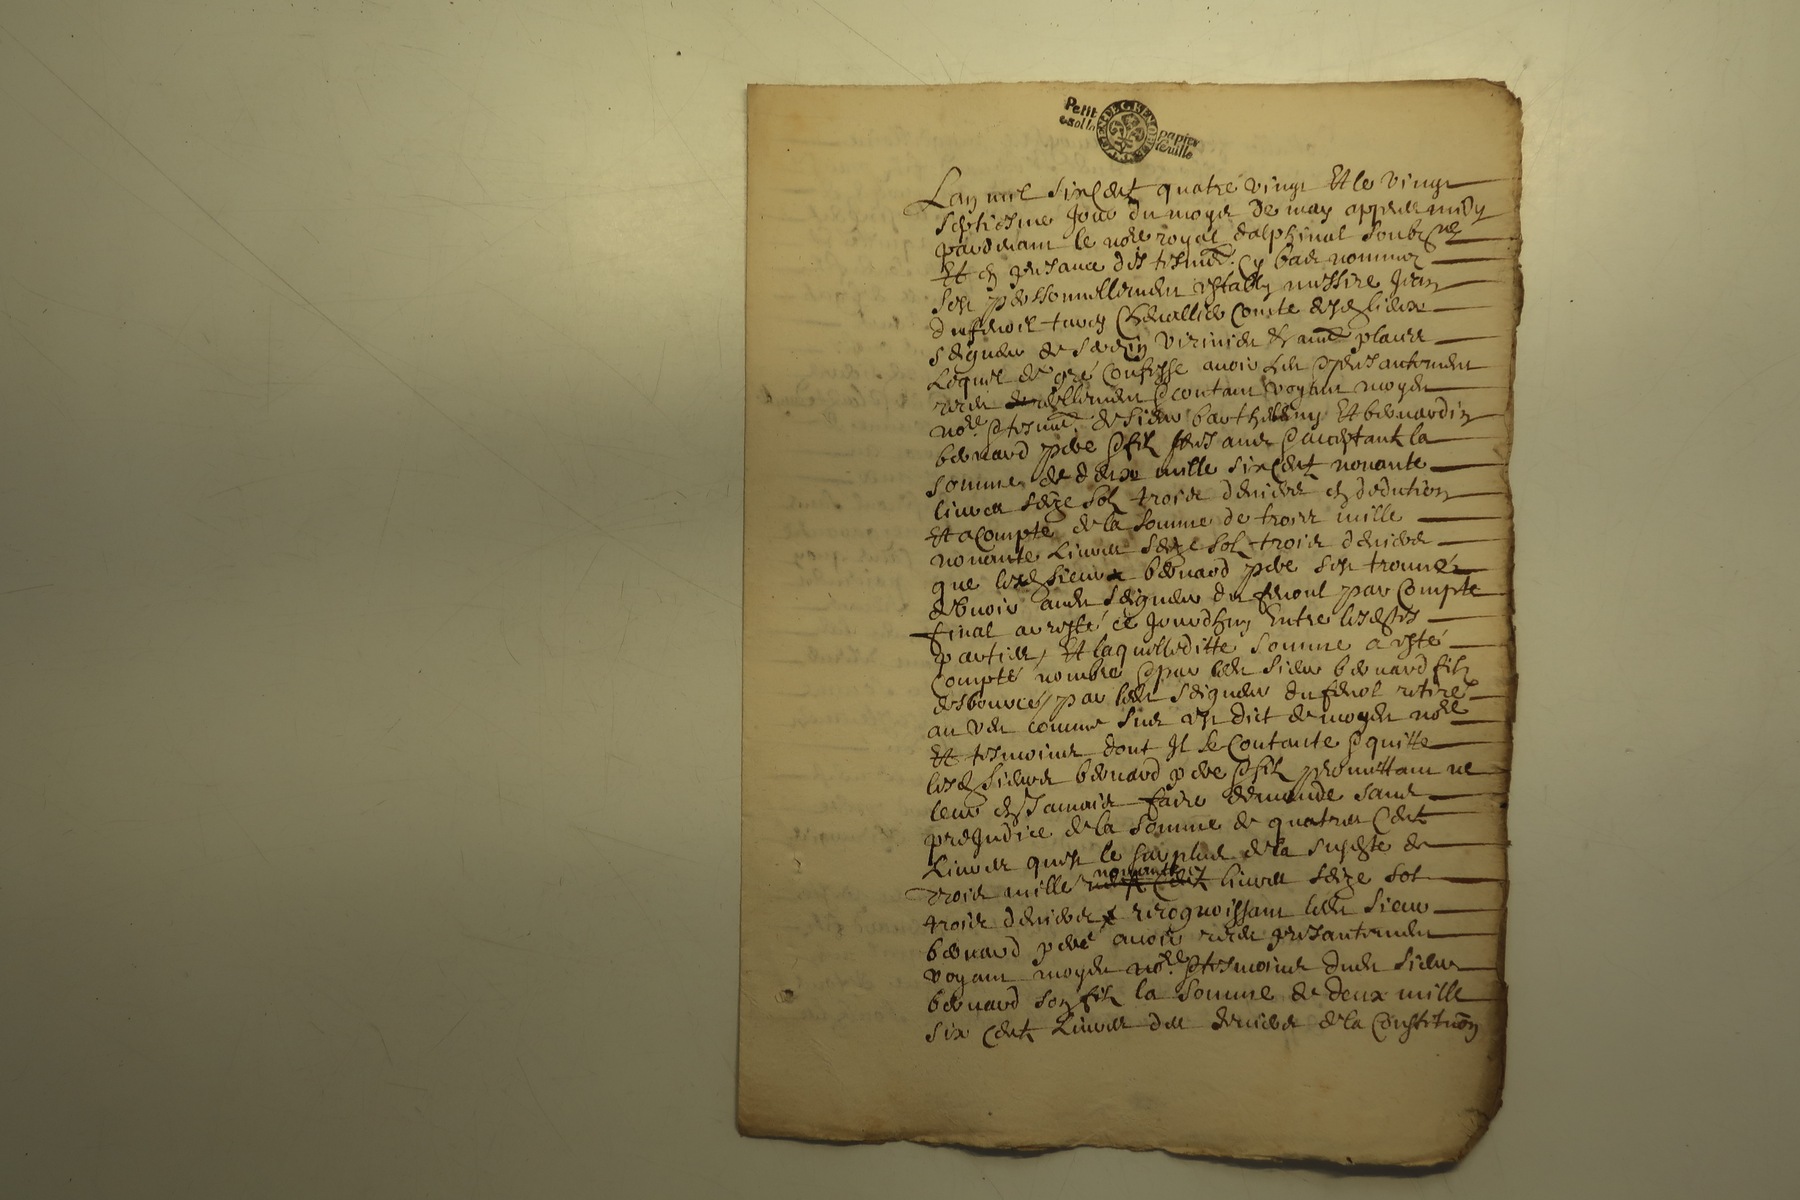 Petit papier
exol la feuille
GENERALITE DE GRENOBLE
Lan mil six Cent quatre vingt Et le vingt
septiesme Jour du moys de may appres midy
pardevant le nore royal dalphinal soubzne
Et en presance des tesme cy bas nommez
sest personnellement estably messire Jean
du fenoil turey Chevallier Comte
seigneur de
Lequel de gré Confesse avoir heu presantement
receu reellement & contant voyant moyd
nore & tesme de sieurs barthellemy Et bernardin
bernard pere & filz & acceptant la
somme de deux mille six Cent nonante
livres seize solz trois deniers en dedution
Et a Compte de la somme de trois mille
nonante Livres seize solz trois deniers
que lesd sieur bernard pere sest trouvé
debvoir aud seigneur du fenoul par Compte
final arresté ce Jourdhuy Entre lesdites
parties, Et laquelleditte somme a esté
Compté nombre & par led sieur bernard filz
desbource, par led seigneur du fenol retire
au veu comme sus est dict de moyd nore
Et tesmoins dont Il se Contante & quitte
lesd sieurs bernard pere & filz promettant ne
leur en Jamais faire demande sans
prejudice de la somme de quatre Cent
Livres quest le surplus de la susdte de
trois mille nonante livres seize sol
trois deniers recognoissant led sieur
bernard pere avoir receu presantement
voyant moyd nore & tesmoins dud sieur
bernard son filz la somme de deux mille
six Cent Livres des deniers de la Constitution